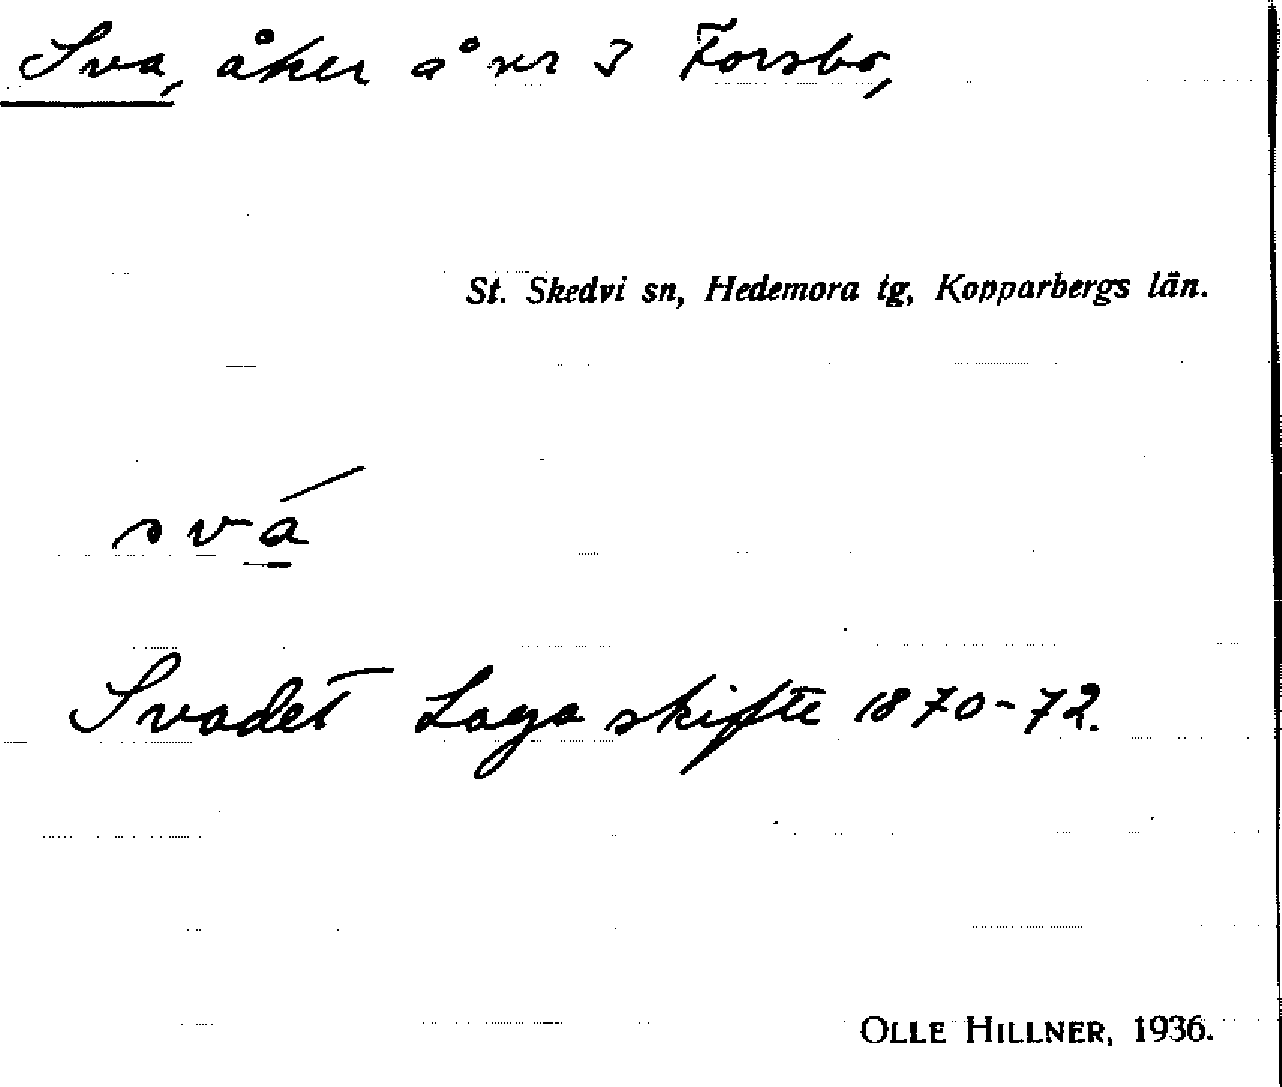 Sva, åker å nr 3 Forsbo,
St. Skedvi sn, Hedemora tg, Kopparbergs län.
svá
Svadet Laga skifte 1870-72.
OLLE HILLNER, 1936.